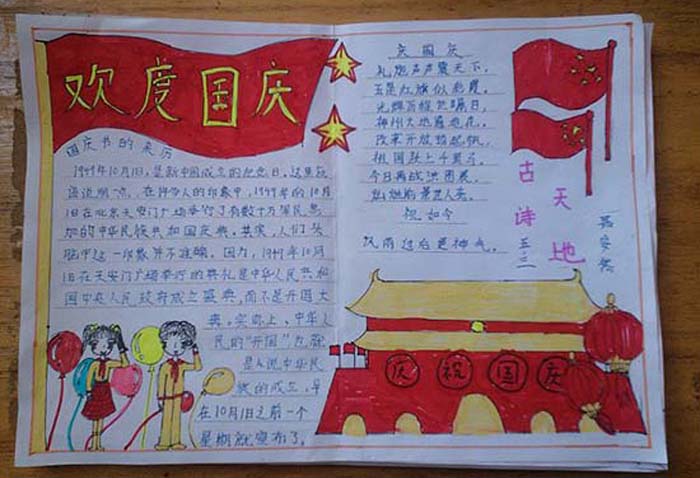 欢度国庆
国庆节的来历
1949年10月1日,是新中国成立的纪念日。这里应
该说明一点,在许多人的印象中,1949年的10月
1日在北京天安门广场举行了有数十万军民参
加的中华人民共和国国庆典。其实,人们头
脑中这一印象并不准确。因为,1949年10月1
日在天安门广场举行的典礼是中华人民共和
国中央人民政府成立盛典,而不是开国大
典。实际上,中华人
民的“开国”
是人说中华民
族的成立,早
在10月1日之前一个
星期就宣布了。
庆国庆
礼炮声声震天下,
五星红旗似彩霞。
神州大地遍地花。
改革开放
祖国跃上千里马。
今日再战洪图展,
祝如今
风雨过后更神气。
古诗
天地
五三
庆祝国庆